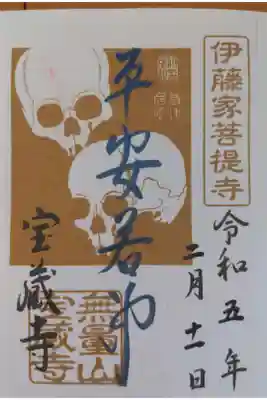 伊藤家菩提寺
令和五年
二月十一日
平安若冲
宝蔵寺
無量山
宝蔵寺